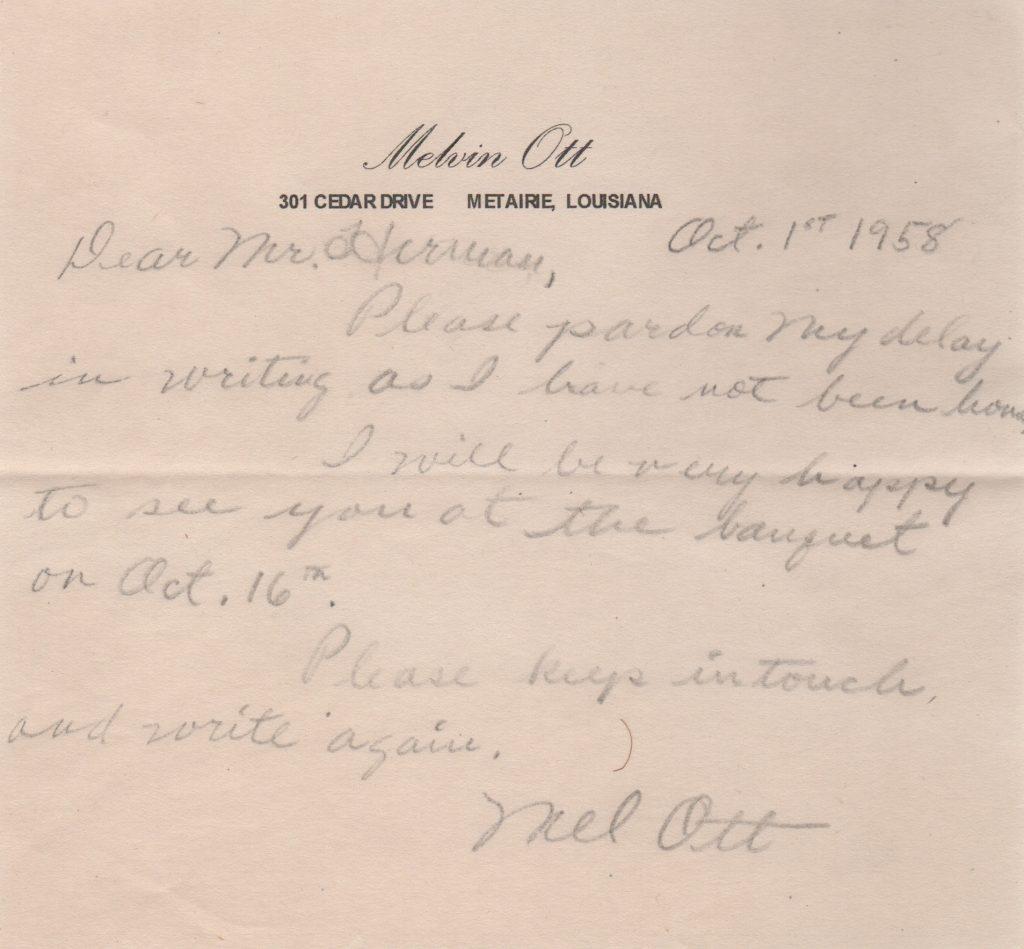 Melvin Ott
301 CEDAR DRIVE METAIRIE, LOUISIANA
Oct. 1st 1958
Dear Mr. Herman,
Please pardon my delay
in writing as I have not been home,
I will be very happy
to see you at the banquet
on Oct. 16th.
Please keep in touch,
and write again.
Mel Ott